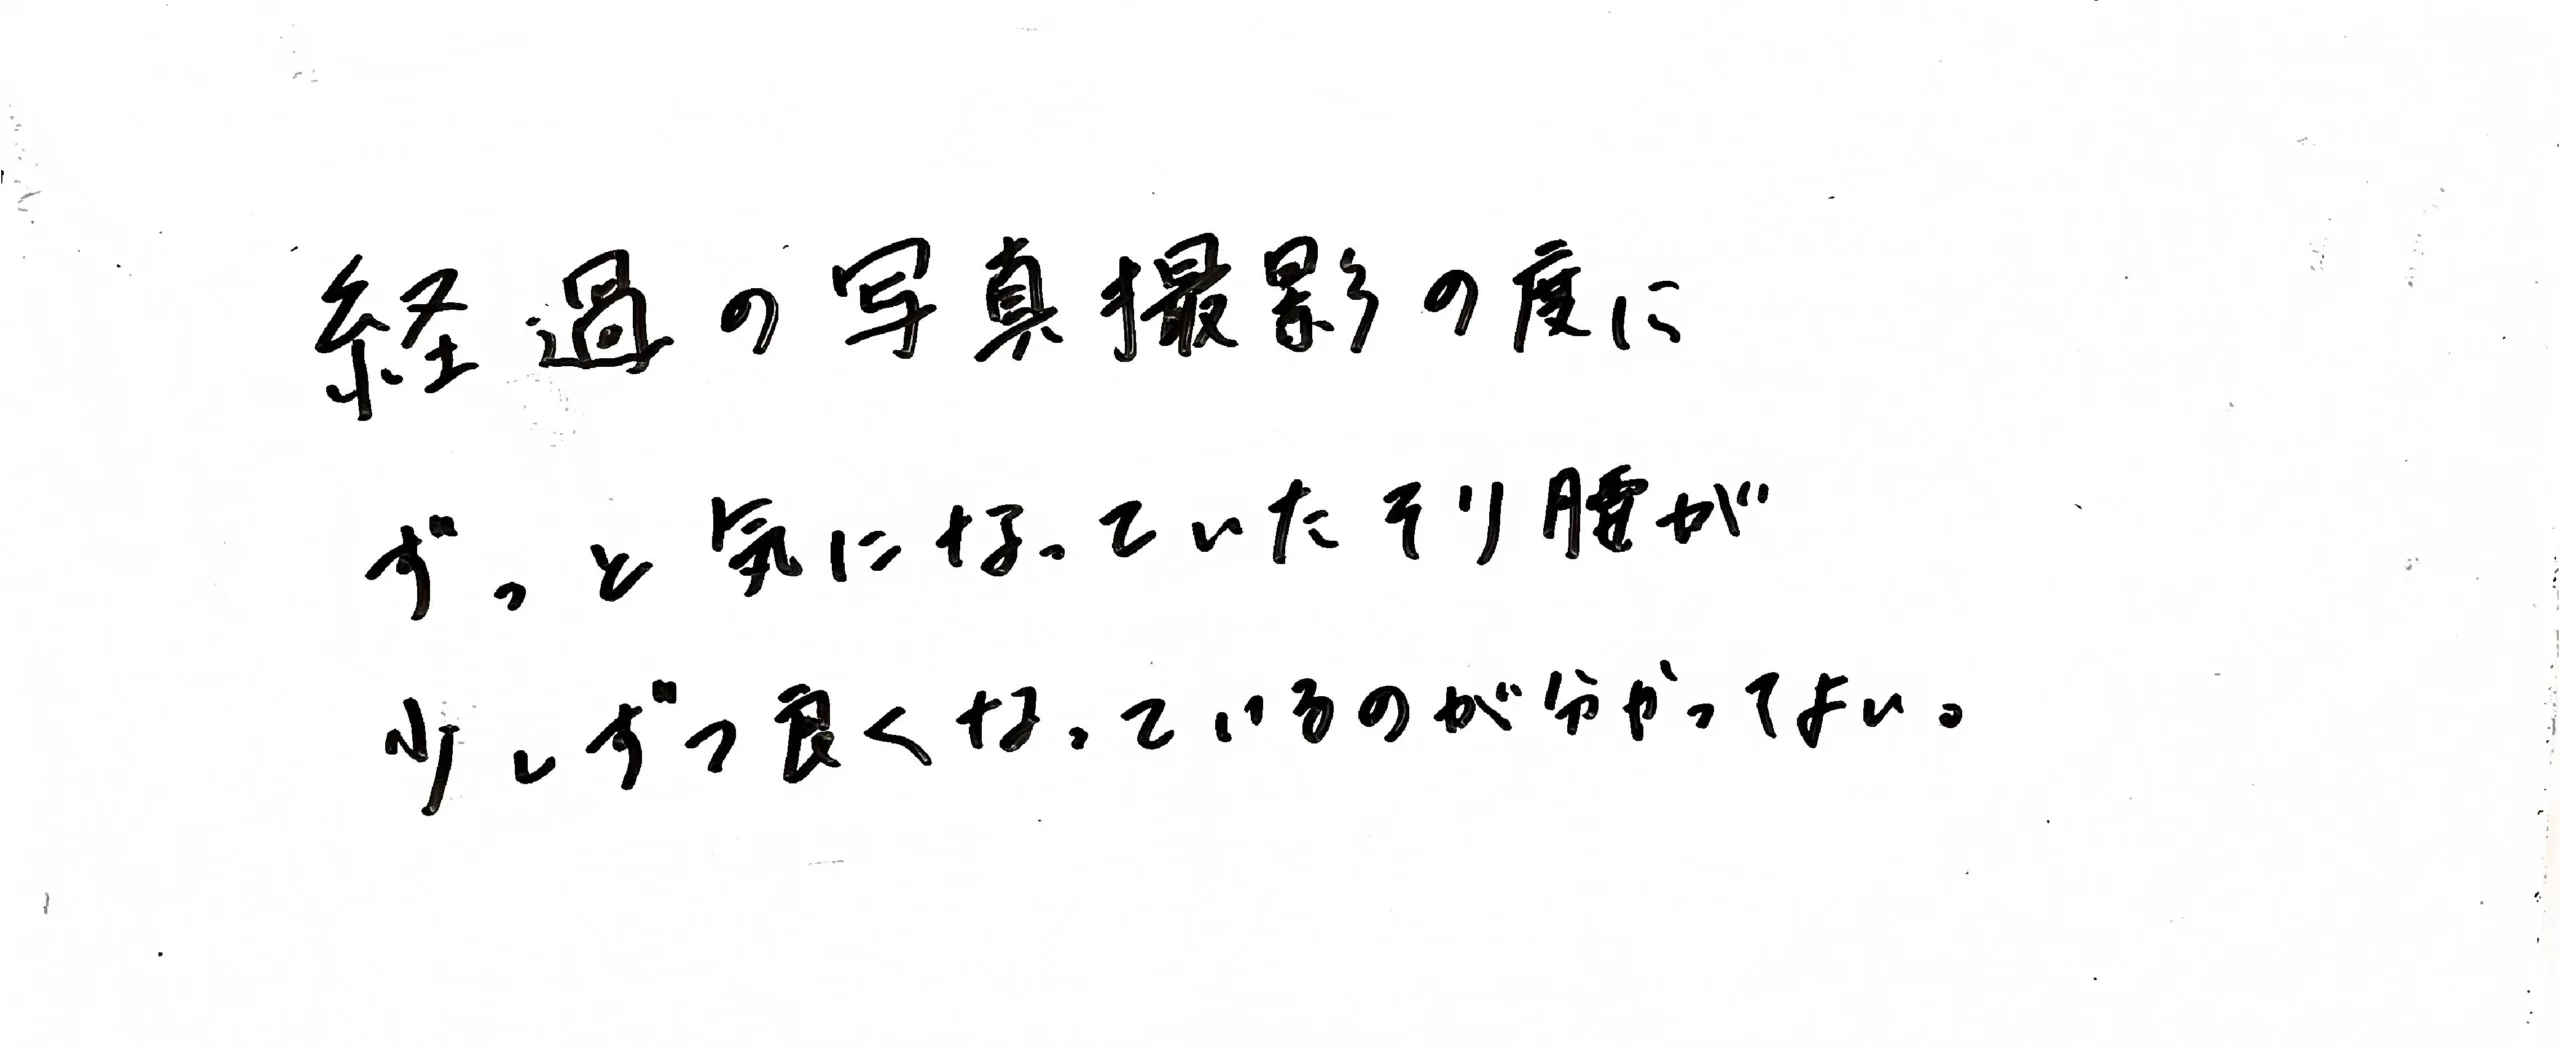 経過の写真撮影の度に
ずっと気になっていたそり腰が
少しずつ良くなっているのが分かってよい。